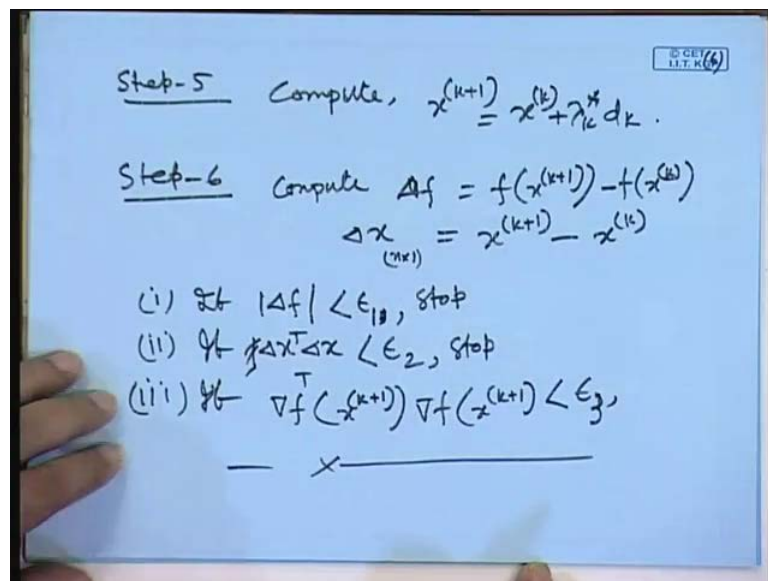 © CET
I.I.T. K
(6)
Step-5 Compute, x^(k+1) = x^(k) + λ_k^* d_k .
Step-6 Compute Δf = f(x^(k+1)) - f(x^(k))
Δx = x^(k+1) - x^(k)
(n×1)
(i) If |Δf| < ε_1, stop
(ii) If Δx^T Δx < ε_2, stop
(iii) If ∇f^T(x^(k+1)) ∇f(x^(k+1) < ε_3,